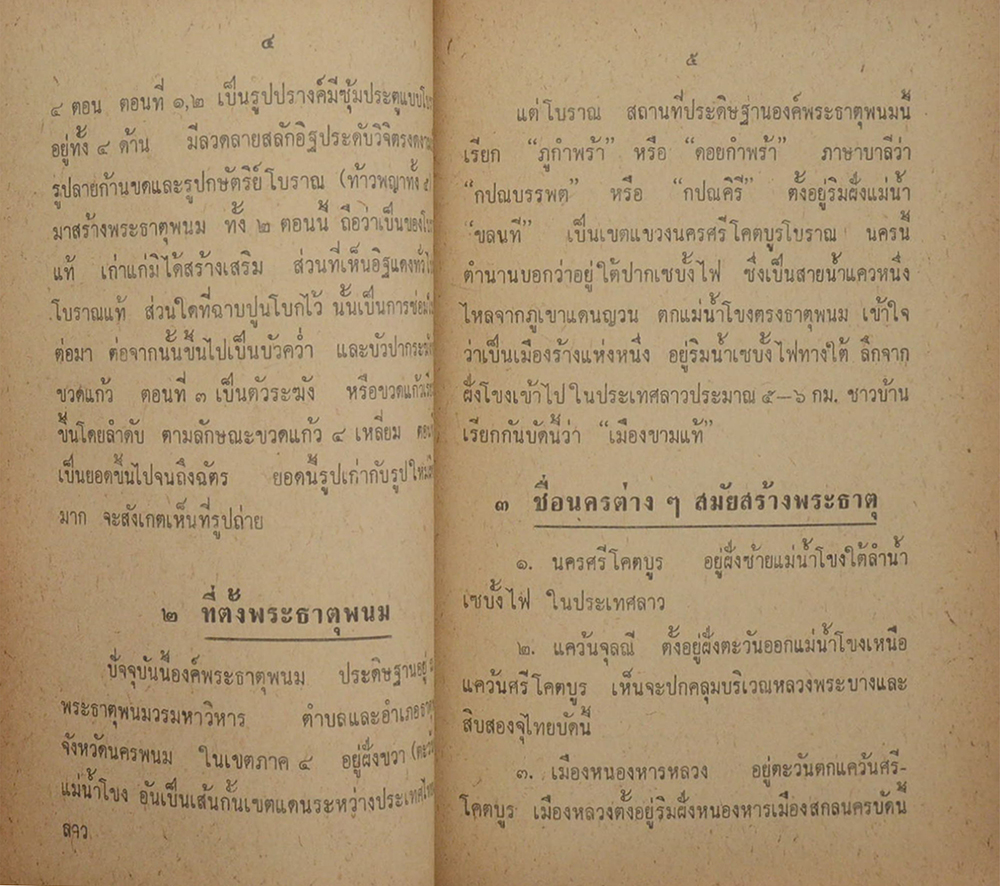 ๔
๔ ตอน ตอนที่ ๑,๒ เป็นรูปปรางค์มีซุ้มประตูแบบ
อยู่ทั้ง ๔ ด้าน มีลวดลายสลักอิฐประดับวิจิตรงดงาม
รูปลายก้านขดและรูปกษัตริย์โบราณ (ท้าวพญาทั้ง ๕
มาสร้างพระธาตุพนม ทั้ง ๒ ตอนนี้ ถือว่าเป็นของ
แท้ เก่าแก่มิได้สร้างเสริม ส่วนที่เห็นอิฐแดง
โบราณแท้ ส่วนใดที่ฉาบปูนโบกไว้ นั้นเป็นการ
ต่อมา ต่อจากนั้นขึ้นไปเป็นบัวคว่ำ และบัวปาก
ขวดแก้ว ตอนที่ ๓ เป็นตัวระฆัง หรือขวดแก้ว
ขึ้นโดยลำดับ ตามลักษณะขวดแก้ว ๔ เหลี่ยม
เป็นยอดขึ้นไปจนถึงฉัตร ยอดนี้รูปเก่ากับรูปใหม่
มาก จะสังเกตเห็นที่รูปถ่าย
๒ ที่ตั้งพระธาตุพนม
ปัจจุบันนี้องค์พระธาตุพนม ประดิษฐานอยู่
พระธาตุพนมวรมหาวิหาร ตำบลและอำเภอ
จังหวัดนครพนม ในเขตภาค ๔ อยู่ฝั่งขวา
แม่น้ำโขง อันเป็นเส้นกั้นเขตแดนระหว่างประเทศ
ลาว
๕
แต่โบราณ สถานที่ประดิษฐานองค์พระธาตุพนมนี้
เรียก “ภูกำพร้า” หรือ “ดอยกำพร้า” ภาษาบาลีว่า
“กปณบรรพต” หรือ “กปณคิรี” ตั้งอยู่ริมฝั่งแม่น้ำ
‘ขลนที” เป็นเขตแขวงนครศรีโคตบูรโบราณ นครนี้
ตำนานบอกว่าอยู่ใต้ปากเซบั้งไฟ ซึ่งเป็นสายน้ำแควหนึ่ง
ไหลจากภูเขาแดนญวน ตกแม่น้ำโขงตรงธาตุพนม เข้าใจ
ว่าเป็นเมืองร้างแห่งหนึ่ง อยู่ริมน้ำเซบั้งไฟทางใต้ ลึกจาก
ฝั่งโขงเข้าไปในประเทศลาวประมาณ ๕–๖ กม. ชาวบ้าน
เรียกกันบัดนี้ว่า “เมืองขามแท้”
๓ ชื่อนครต่าง ๆ สมัยสร้างพระธาตุ
๑. นครศรีโคตบูร อยู่ฝั่งซ้ายแม่น้ำโขงใต้ลำน้ำ
เซบั้งไฟ ในประเทศลาว
๒. แคว้นจุลณี ตั้งอยู่ฝั่งตะวันออกแม่น้ำโขงเหนือ
แคว้นศรีโคตบูร เห็นจะปกคลุมบริเวณหลวงพระบางและ
สิบสองจุไทยบัดนี้
๓. เมืองหนองหารหลวง อยู่ตะวันตกแคว้นศรี-
โคตบูร เมืองหลวงตั้งอยู่ริมฝั่งหนองหารเมืองสกลนครบัดนี้